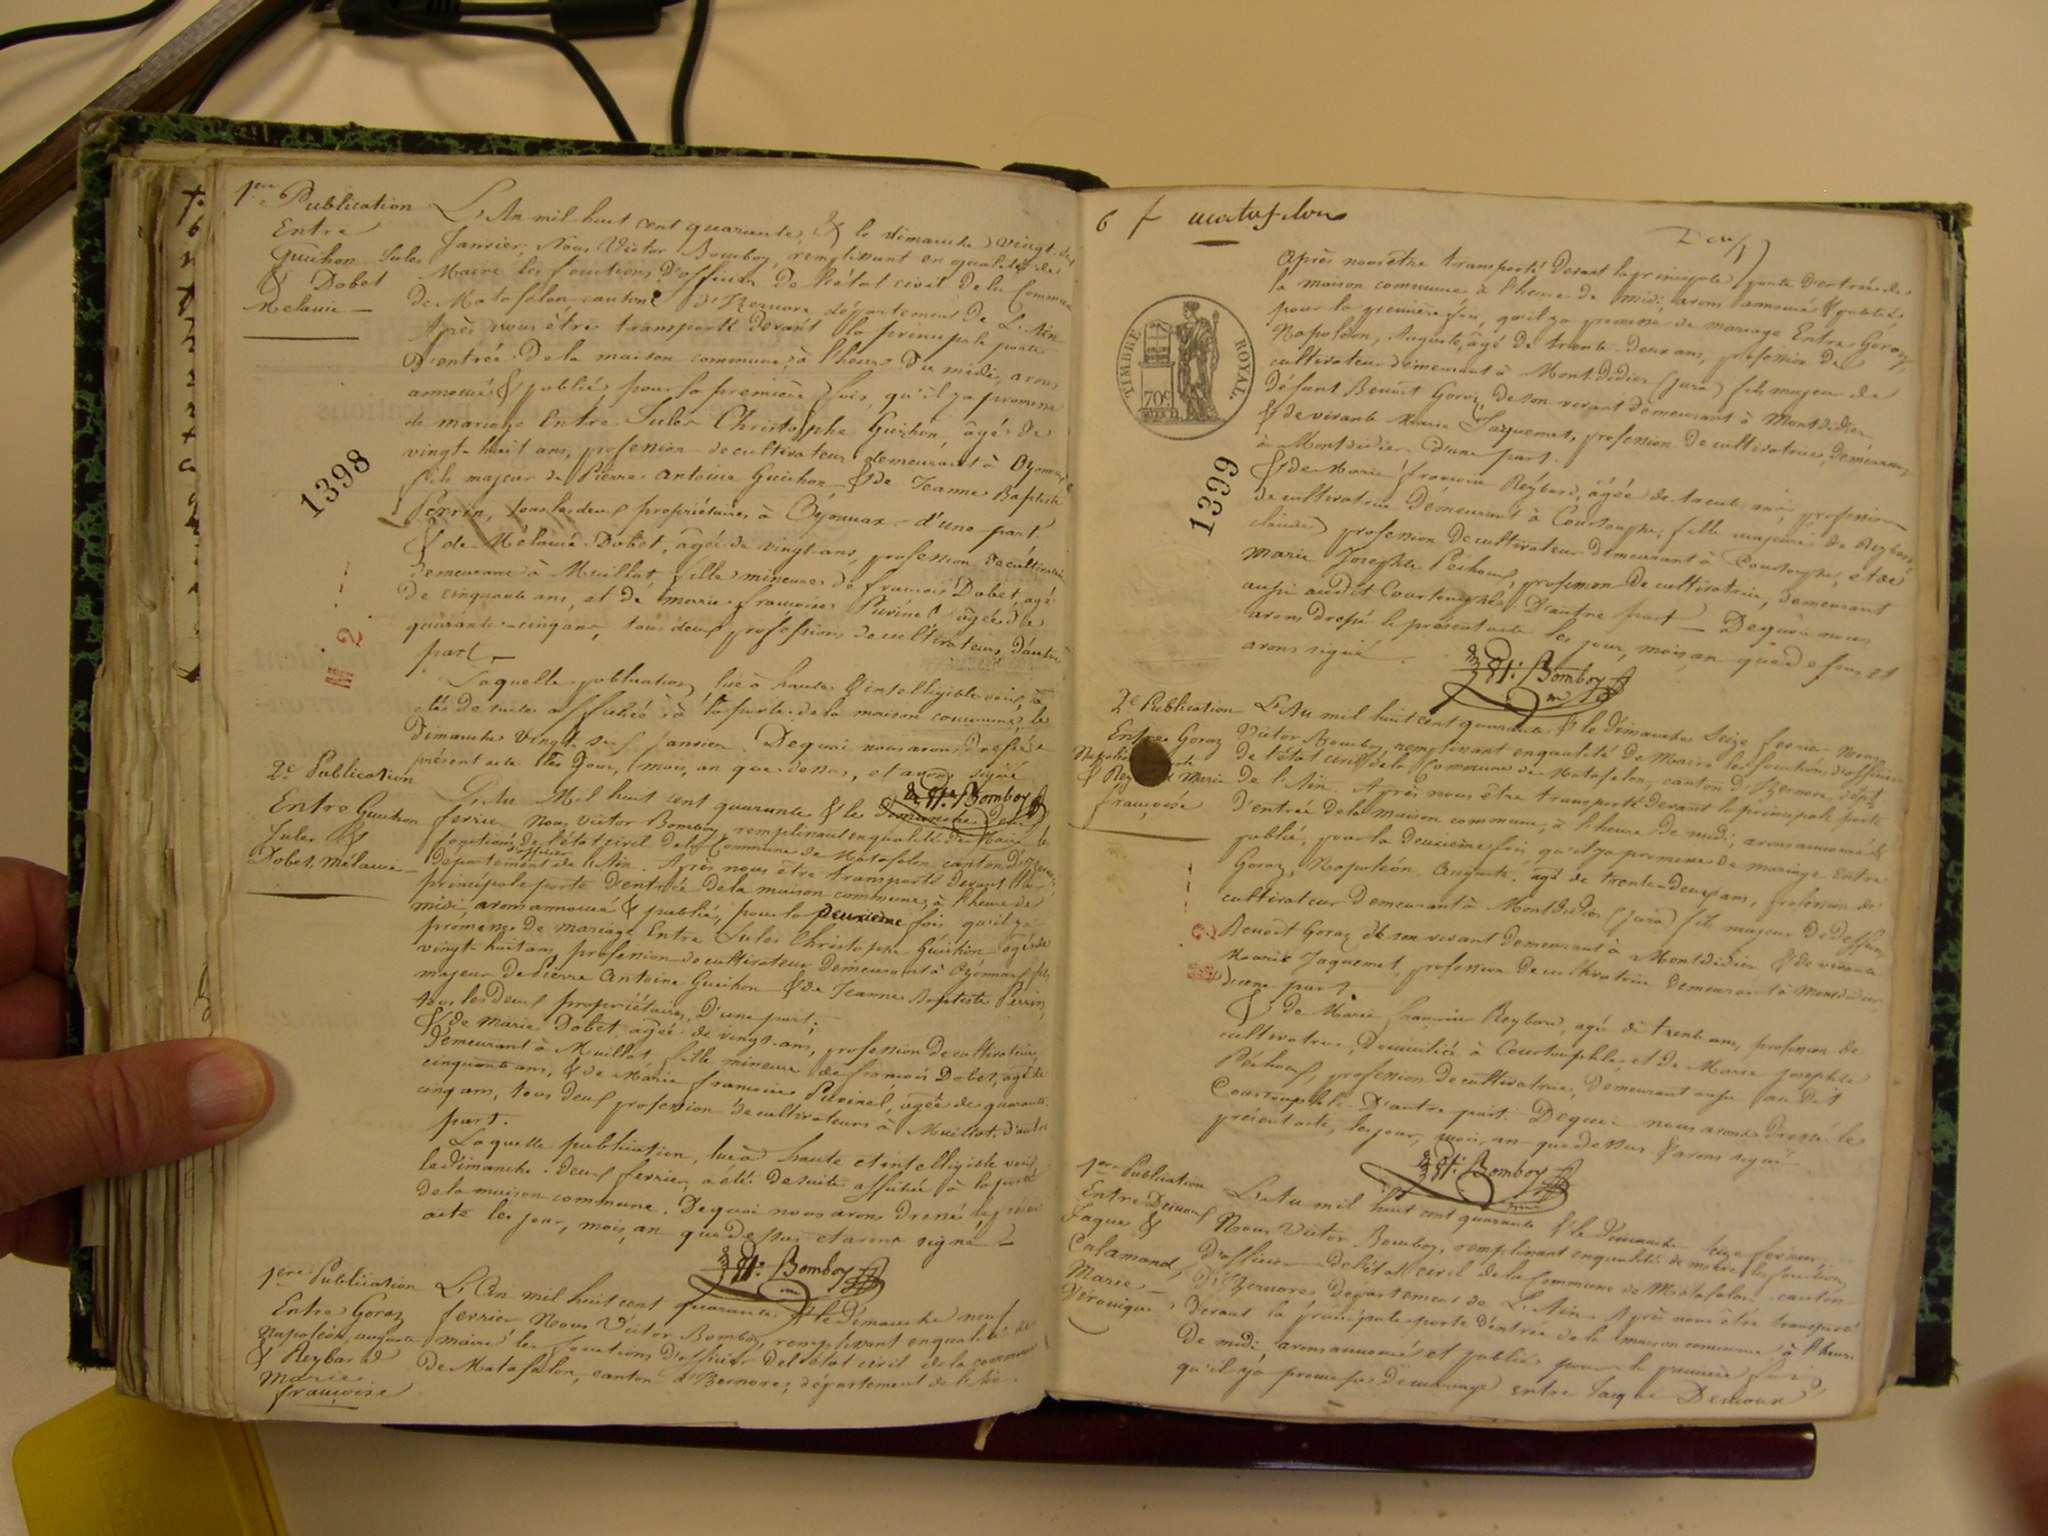 1ere Publication
Entre
Guichon Jules
& Dobet
Melanie —
L'An mil huit cent quarante, & le dimanche vingt six
Janvier, Nous Victor Bomboy, remplissant en qualité de
Maire les fonctions d'officier de l'état civil de la Commune
de Matafelon canton d'Izernore département de L'Ain
Après nous être transporté devant la principale porte
d'entrée de la maison commune, à l'heure du midi, avons
annoncé & publié, pour la première fois, qu'il y a promesse
de mariage Entre Jules Christophe Guichon, âgé de
vingt-huit ans, profession de cultivateur demeurant à Oyonnax
fils majeur de Pierre Antoine Guichon & de Jeanne Baptiste
Perrin, tous les deux propriétaires à Oyonnax - d'une part.
& de Mélanie Dobet, agée de vingt ans, profession de cultivatrice
demeurant à Muillat, fille mineure de francois Dobet, agé
de cinquante ans, et de marie francoise agée de
quarante-cinq ans, tous deux professions de cultivateurs, d'autre
part —
Laquelle publication, lue à haute & intelligible voix, a
été de suite affichée à la porte de la maison commune, le
dimanche vingt six Janvier. De quoi nous avons dressé le
présent acte les Jour, mois, an que dessus, et avons signé
Vt: Bomboy
1398
2e Publication
Entre Guichon
Jules &
Dobet, Mélanie —
L'An Mil huit cent quarante & le dimanche deux
fevrier Nous Victor Bomboy, remplissant en qualité de Maire les
fonctions d'officier de l'état civil de la Commune de Matafelon canton d'Izernore
département de l'Ain. Après nous être transporté devant la
principale porte d'entrée de la maison commune, à l'heure de
midi, avons annoncé & publié, pour la deuxième fois qu'il y a
promesse de mariage Entre Jules Christophe Guichon agé de
vingt-huit ans, profession de cultivateur demeurant à Oyonnax fils
majeur de Pierre Antoine Guichon & de Jeanne Baptiste Perrin,
tous les deux propriétaires, D'une part;
& de Marie Dobet agée de vingt ans, profession de cultivatrice,
demeurant à Muillat, fille mineure de francois Dobet, agé de
cinquante ans, & de Marie francoise agée de quarante
cinq ans, tous deux profession de cultivateurs à Muillat, d'autre
part.
Laquelle publication, lue à haute et intelligible voix
le dimanche deux fevrier, a été de suite affichée à la porte
de la maison commune. De quoi nous avons dressé le présent
acte les jour, mois, an que dessus et avons signé —
Vt: Bomboy
1ere Publication
Entre Goroz
Napoléon, auguste
& Reybard
Marie
francoise
L'An mil huit cent quarante & le dimanche neuf
fevrier Nous Victor Bomboy, remplissant en qualité de
maire les fonctions d'officier de l'état civil de la commune
de Matafelon, canton d'Izernore, département de l'Ain.
6 f matafelon
TIMBRE ROYAL.
70c
1399
Après nous être transporté devant la principale porte d'entrée de
la maison commune à l'heure de midi, avons annoncé & publié
pour la première fois, qu'il y a promesse de mariage Entre Goroz,
Napoléon, Auguste, âgé de trente-deux ans, profession de
cultivateur demeurant à Mont-didier (jura) fils majeur de
défunt Benoit Goroz, de son vivant demeurant à Montdidier,
& de vivante Marie Jaquemet, profession de cultivatrice, demeurant
à Montdidier, d'une part.
& de Marie francoise Reybard, âgée de trente ans, profession
de cultivatrice demeurant à Courtouphle, fille majeure de Reybard
claude, profession de cultivateur demeurant à Courtouphle, et de
Marie Josephte profession de cultivatrice, demeurant
aussi audit Courtouphle, D'autre part — De quoi nous
avons dressé le présent acte les jour, mois, an que dessus, et
avons signé.
Vt: Bomboy
2e Publication
Entre Goroz
Napoléon
& Marie
françoise
L'An mil huit cent quarante & le dimanche Seize fevrier Nous
Victor Bomboy, remplissant en qualité de Maire les fonctions d'officier
de l'état civil de la Commune de Matafelon, canton d'Izernore, dépt
de l'Ain. Après nous être transporté devant la principale porte
d'entrée de la maison commune, à l'heure de midi, avons annoncé &
publié, pour la deuxième fois qu'il y a promesse de mariage Entre
Goroz, Napoléon, Auguste, agé de trente-deux ans, profession de
cultivateur demeurant à Montdidier (jura) fils majeur de deffunt
Benoît Goroz de son vivant demeurant à Montdidier & de vivante
Marie Jaquemet, profession de cultivatrice demeurant à Montdidier
d'une part.
& de Marie francoise Reybard, agée de trente ans, profession de
cultivatrice, domiciliée à Courtouphle, et de Marie josephte
profession de cultivatrice, demeurant aussi au dit
Courtouphle. D'autre part. De quoi nous avons dressé le
présent acte, les jour, mois, an que dessus & avons signé
Vt: Bomboy
1ere Publication
Entre
Jaques &
Calamand,
Marie
Véronique
L'An mil huit cent quarante & le dimanche seize fevrier,
Nous Victor Bomboy, remplissant en qualité de maire les fonctions
d'officier de l'état civil de la Commune de Matafelon canton
d'Izernore Département de L'Ain. Après nous être transporté
devant la principale porte d'entrée de la maison commune à l'heure
de midi, avons annoncé et publié pour la première fois,
qu'il y a promesse de mariage entre Jaque